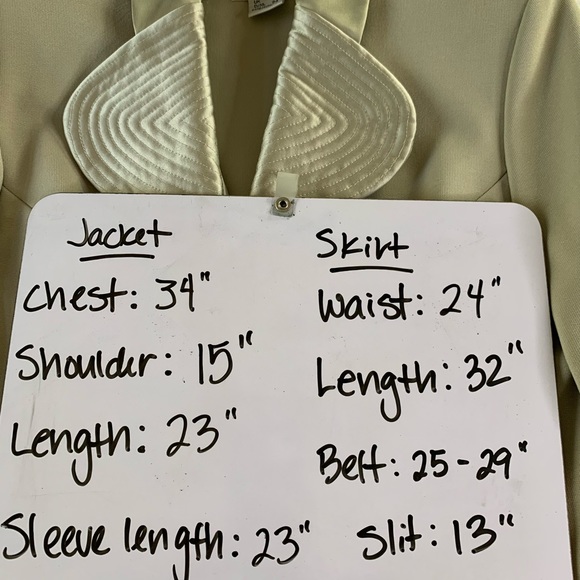 Jacket
Chest: 34"
Shoulder: 15"
Length: 23"
Sleeve length: 23"
Skirt
Waist: 24"
Length: 32"
Belt: 25-29"
Slit: 13"